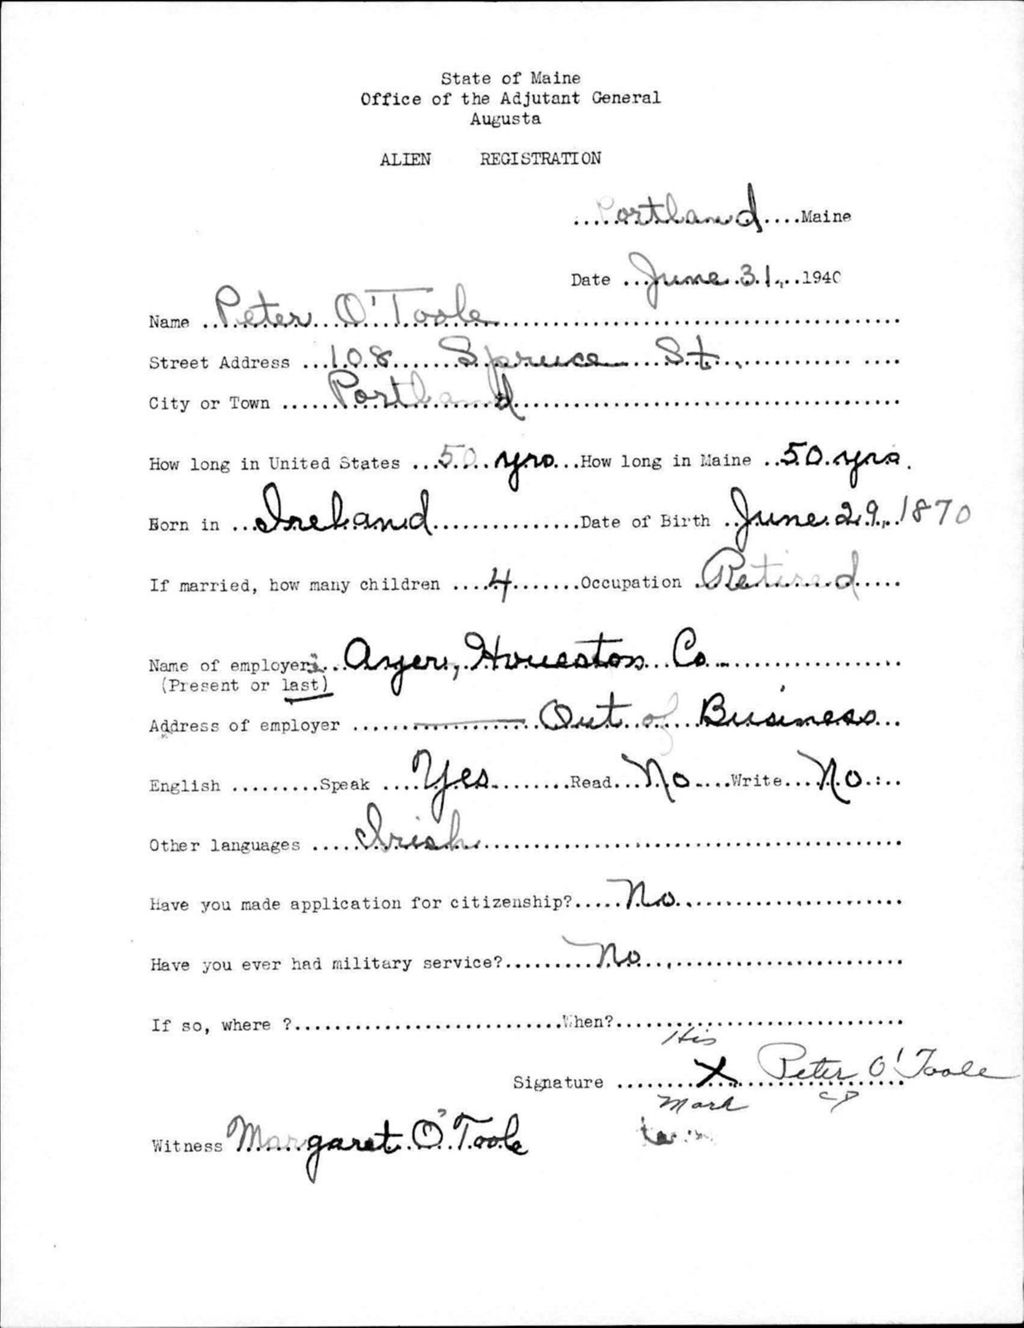 State of Maine
Office of the Adjutant General
Augusta
ALIEN REGISTRATION
Portland Maine
Date June 31, 1940
Name Peter O'Toole
Street Address 108 Spruce St.
City or Town Portland
How long in United States 50 yrs How long in Maine 50 yrs.
Born in Ireland Date of Birth June 29, 1870
If married, how many children 4 Occupation Retired
Name of employer Ayer, Houeston Co
(Present or last)
Address of employer Out of Business
English Speak Yes Read No Write No
Other languages Irish
Have you made application for citizenship? No
Have you ever had military service? No
If so, where ? When?
His
Signature X Peter O'Toole
Mark
Witness Margaret O'Toole